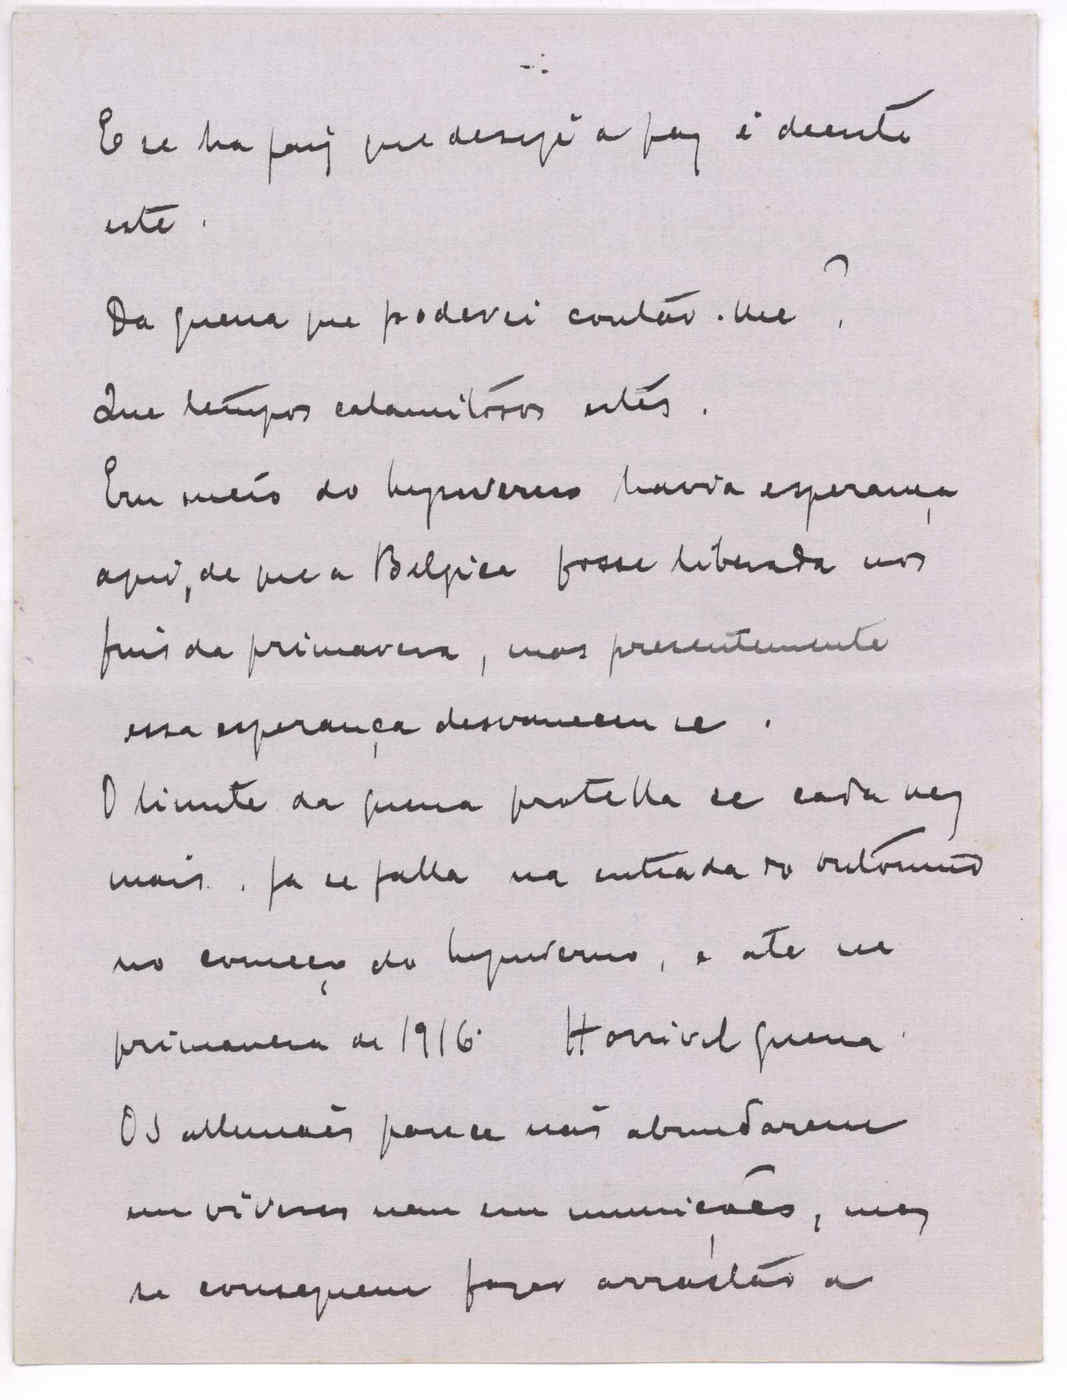 E se ha paiz que deseje a paz é decerto
este.
Da guerra que poderei contar-lhe?
Que tempos calamitosos estes.
Em meio do hynverno havia esperança
aqui, de que a Belgica fosse liberada nos
fins da primavera, mas presentemente
essa esperança desvaneceu se.
O limite da guerra protella se cada vez
mais. Ja se falla na entrada do outomno
no começo do hynverno, e ate na
primavera de 1916. Horrivel guerra.
Os allemaes parece não abundarem
em viveres nem em munições, mas
se conseguem fazer arrastar a